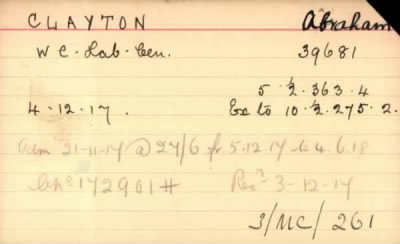 CLAYTON Abraham
W C. Lab. Cen. 39681
5.½.363.4
4.12.17. Ex to 10.½.275.2.
Adm 21-11-17 @ 27/6 fr 5.12.17 to 4.6.18
172901# Rec^d 3-12-17
3/MC/261